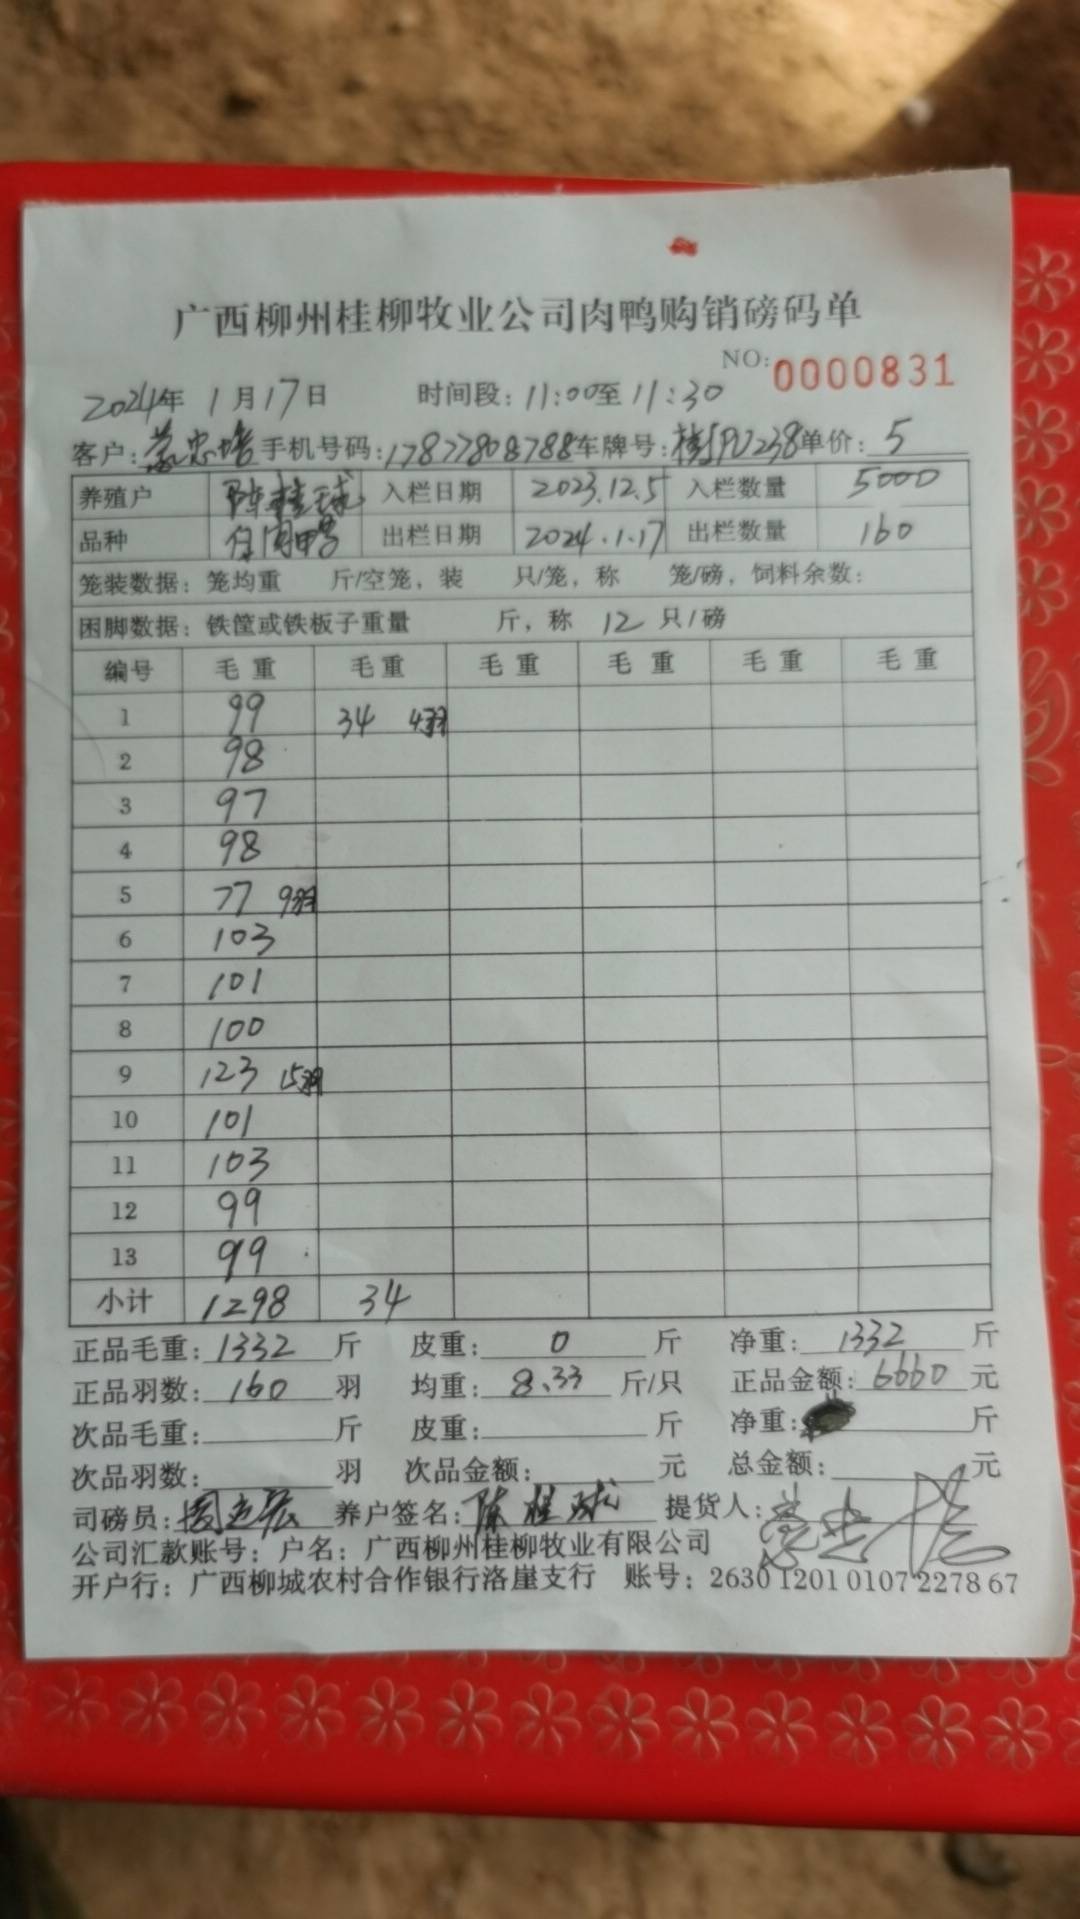 广西柳州桂柳牧业公司肉鸭购销磅码单
NO: 0000831
2024年 1月17日 时间段: 11:00至11:30
客户: 忠培 手机号码: 17877808788 车牌号: 单价: 5
养殖户 陈桂球 入栏日期 2023.12.5 入栏数量 5000
品种 白肉鸭 出栏日期 2024.1.17 出栏数量 160
笼装数据: 笼均重 斤/空笼, 装 只/笼, 称 笼/磅, 饲料余数:
困脚数据: 铁筐或铁板子重量 斤, 称 12 只/磅
编号 毛重 毛重 毛重 毛重 毛重 毛重
1 99 34 4羽
2 98
3 97
4 98
5 77 9羽
6 103
7 101
8 100
9 123 15羽
10 101
11 103
12 99
13 99
小计 1298 34
正品毛重: 1332 斤 皮重: 0 斤 净重: 1332 斤
正品羽数: 160 羽 均重: 8.33 斤/只 正品金额: 6660 元
次品毛重: 斤 皮重: 斤 净重: 斤
次品羽数: 羽 次品金额: 元 总金额: 元
司磅员: 养户签名: 陈桂球 提货人:
公司汇款账号: 户名: 广西柳州桂柳牧业有限公司
开户行: 广西柳城农村合作银行洛崖支行 账号: 2630 1201 0107 2278 67